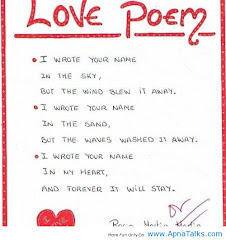 LOVE POEM
I WROTE YOUR NAME
IN THE SKY,
BUT THE WIND BLEW IT AWAY.
I WROTE YOUR NAME
IN THE SAND,
BUT THE WAVES WASHED IT AWAY.
I WROTE YOUR NAME
IN MY HEART,
AND FOREVER IT WILL STAY.
I LOVE
Have Fun Only On www.ApnaTalks.com